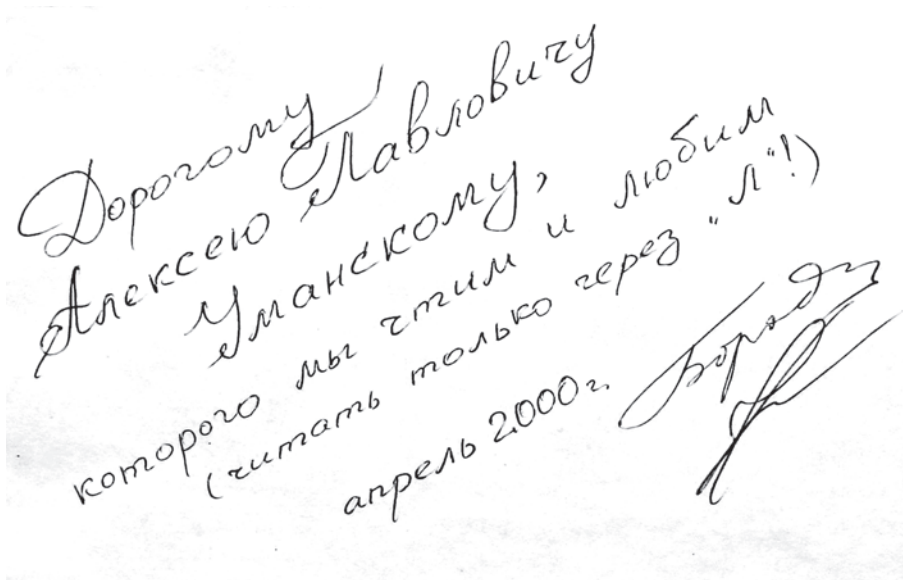 Дорогому
Алексею Павловичу
Уманскому,
которого мы чтим и любим
(читать только через „Л“!)
апрель 2000 г.